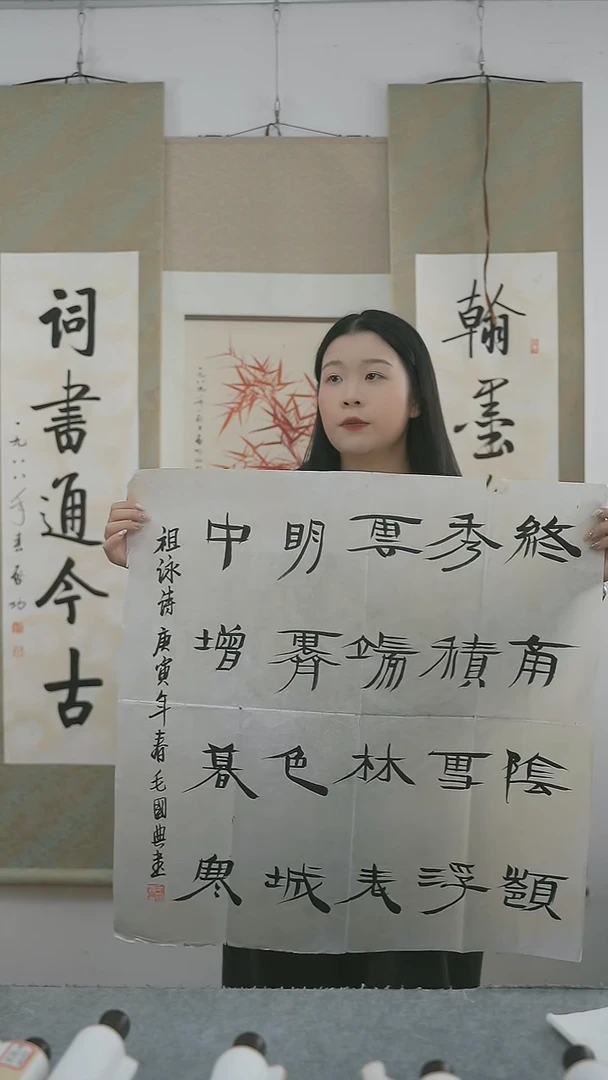 翰墨
終南陰嶺
秀積雪浮
雲端林表
明霽色城
中增暮寒
祖詠詩 庚寅年春毛國典書
詞書通今古
一九八八年春 啓功